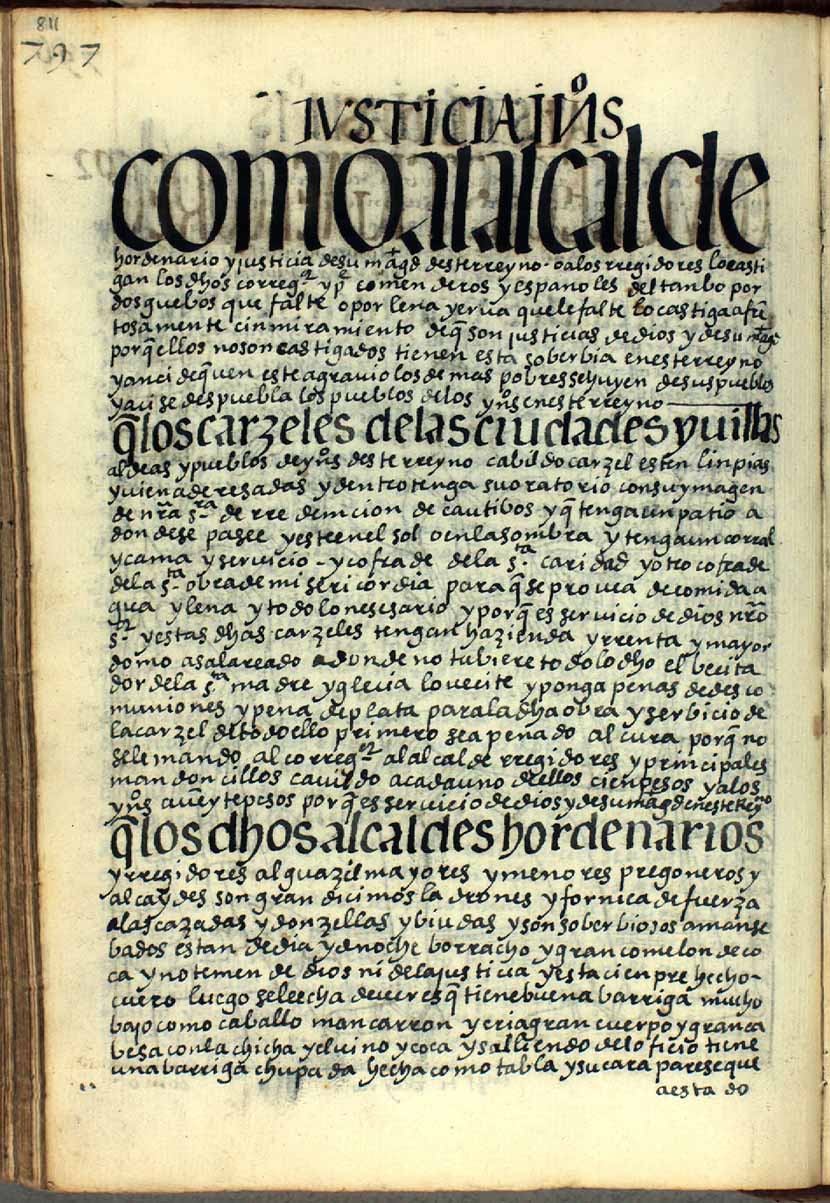 811
797
IVSTICIA IŮS
como al alcalde
hordenario y justicia de su magd deste rreyno o a los rregidores lo casti
gan los dhos corregor y p comenderos y espanoles del tanbo por
dos guebos que falte o por lena yerua que le falte lo castiga afrē
tosamente cin miramiento de q̄ son justicias de dios y de su magd
porq̄ ellos no son castigados tienen esta soberbia en este rreyno
y anci de q̄ uen este agrauio los demas pobres se huyen de sus pueblos
y aci se despuebla los pueblos de los yňs en este rreyno
q̄ los carzeles de las ciudades y uillas
aldeas y pueblos de yňs deste rreyno cabildo carzel esten linpias
y uien aderesadas y dentro tenga su oratorio con su ymagen
de nr̃a sra de rredemcion de cautibos y q̄ tenga un patio a
donde se pasee y este en el sol o en la sombra y tenga un corral
y cama y seruicio - y cofrade de la sta caridad y otro cofrade
de la sta obra de misericordia para q̄ se provea de comida a
gua y lena y todo lo nesesario y porq̄ es seruicio de dios nr̃o
sor y estas dhas carzeles tengan hazienda y rrenta y mayor
domo asalareado adonde no tubiere todo lo dho el becita
dor de la sta madre yglecia lo uecite y ponga penas de desco
muniones y pena de plata para la dha obra y serbicio de
la carzel de todo ello primero sea penado al cura porq̄ no
se le mando al corregor al alcalde rregidores y principales
mandoncillos cauildo a cada uno dellos cien pesos y a los
yňs a ueynte pesos porq̄ es seruicio de dios y de su magd en este rreyno
q̄ los dhos alcaldes hordenarios
y rregidores alguazil mayores y menores pregoneros y
alcaydes son grandicimos ladrones y fornicadefuerza
a las cazadas y donzellas y biudas y son soberbiosos amanse
bados estan de dia y de noche borracho y gran comelon de co
ca y no temen de dios ni de la justicia y esta cienpre hecho
cuero luego se le echa de uer es q̄ tiene buena barriga mucho
bajo como caballo mancarron y cria gran cuerpo y gran ca
besa con la chicha y el uino y coca y saliendo del oficio tiene
una barriga chupada hecha como tabla y su cara parese que
a estado